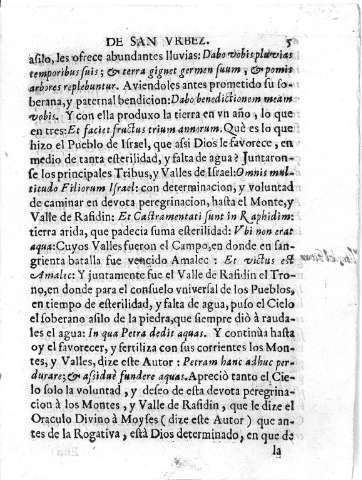 DE SAN VRBEZ. 5
asilo, les ofrece abundantes lluvias: Dabo vobis pluvias
temporibus suis; & terra gignet germen suum, & pomis
arbores replebuntur. Aviendoles antes prometido su so-
berana, y paternal bendicion: Dabo benedictionem meam
vobis. Y con ella produxo la tierra en vn año, lo que
en tres: Et faciet fructus trium annorum. Què es lo que
hizo el Pueblo de Israel, que assi Dios le favorece, en
medio de tanta esterilidad, y falta de agua? Juntaron-
se los principales Tribus, y Valles de Israel: Omnis mul-
titudo Filiorum Israel: con determinacion, y voluntad
de caminar en devota peregrinacion, hasta el Monte, y
Valle de Rafidin: Et Castramentati sunt in Raphidim:
tierra arida, que padecia suma esterilidad: Vbi non erat
aqua: Cuyos Valles fueron el Campo, en donde en san-
grienta batalla fue vencido Amalec: Et victus est
Amalec: Y juntamente fue el Valle de Rafidin el Tro-
no, en donde para el consuelo vniversal de los Pueblos,
en tiempo de esterilidad, y falta de agua, puso el Cielo
el soberano asilo de la piedra, que siempre diò à rauda-
les el agua: In qua Petra dedit aquas. Y continùa hasta
oy el favorecer, y fertiliza con sus corrientes los Mon-
tes, y Valles, dize este Autor: Petram hanc adhuc per-
durare; & assiduè fundere aquas. Apreciò tanto el Cie-
lo solo la voluntad, y deseo de esta devota peregrina-
cion à los Montes, y Valle de Rafidin, que le dize el
Oraculo Divino à Moyses (dize este Autor) que an-
tes de la Rogativa, està Dios determinado, en que de
la